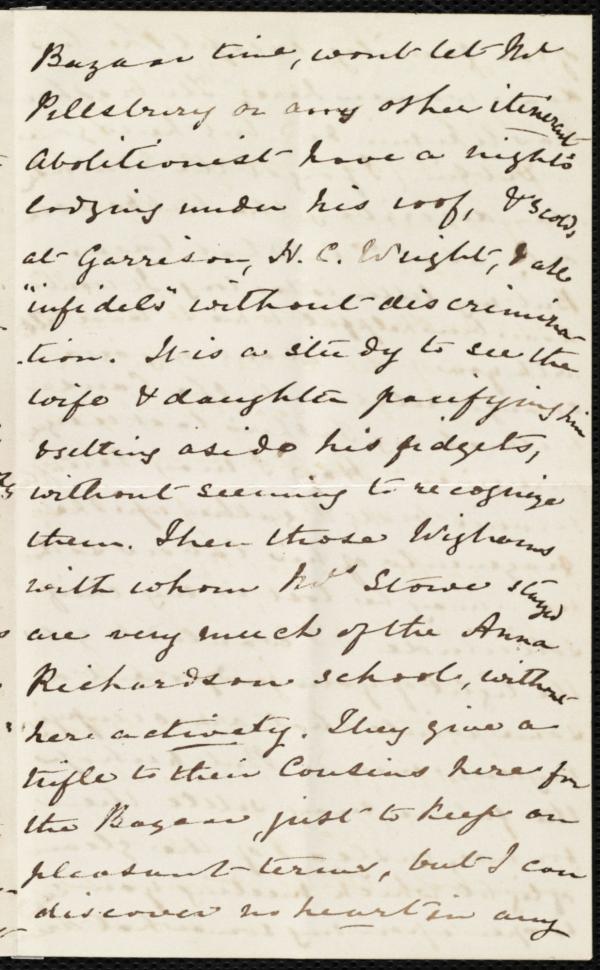 Bazaar time, wont let Mr
Pillsbury or any other itinerant
Abolitionist have a night's
lodging under his roof, & scolds
at Garrison, H. C. Wright, & all
"infidels" without discrimina
-tion. It is a study to see the
wife & daughter pacifying him
& setting aside his fidgets,
without seeming to recognize
them. Then those Wighams
with whom Mrs Stowe stayed
are very much of the Anna
Richardson school, without
her activity. They give a
trifle to their Cousins here for
the Bazaar, just to keep on
pleasant terms, but I can
discover no heart in any